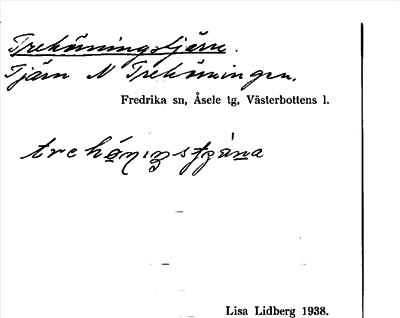 Trehörningstjärn.
Tjärn N Trehörningen.
Fredrika sn, Åsele tg, Västerbottens l.
Lisa Lidberg 1938.